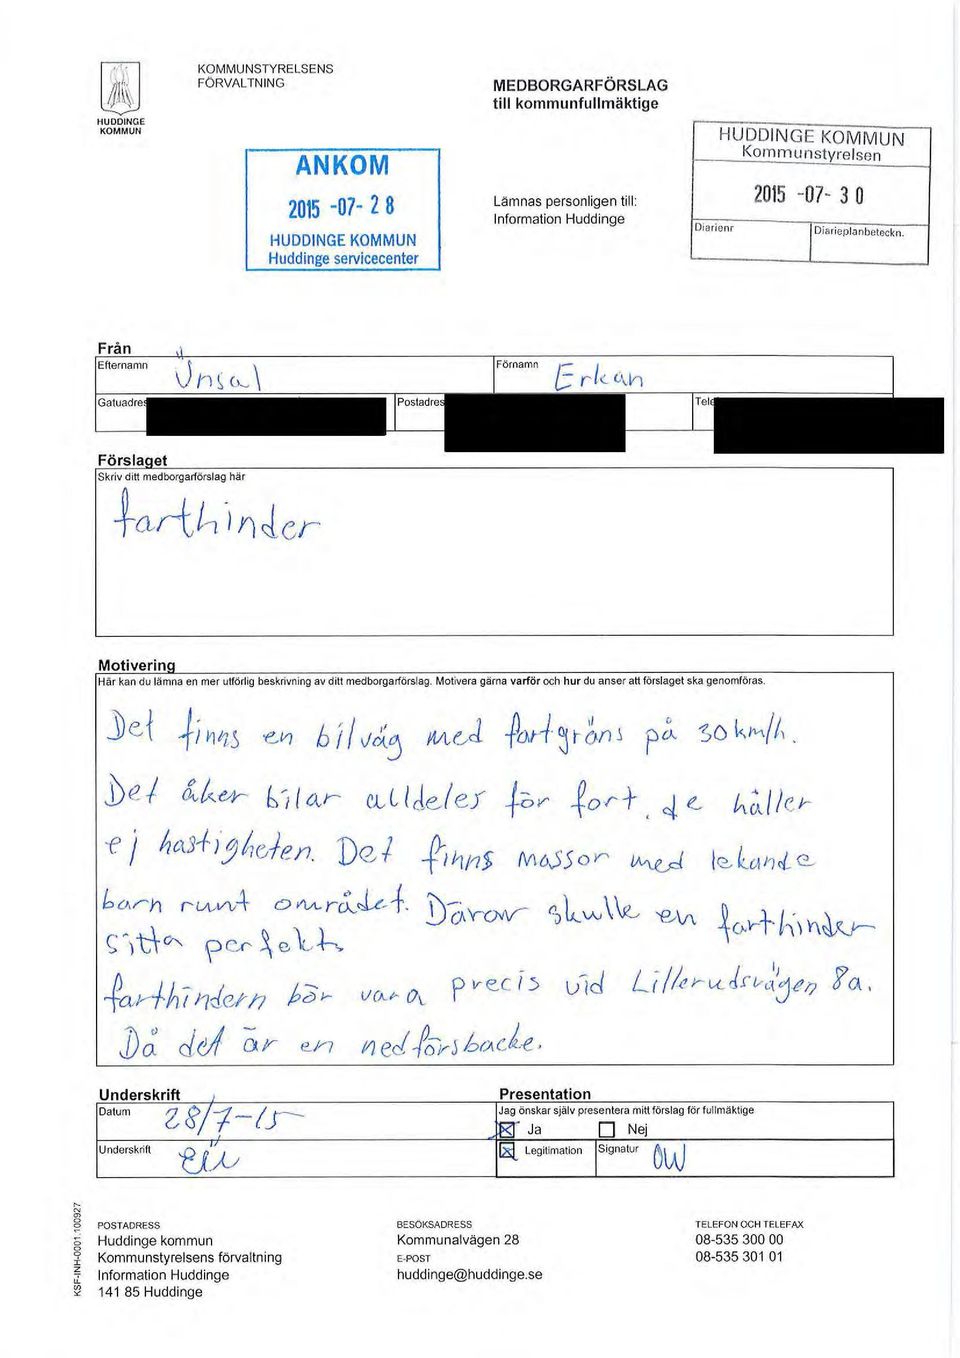 HUDDINGE
KOMMUN
KOMMUNSTYRELSENS
FÖRVALTNING
MEDBORGARFÖRSLAG
till kommunfullmäktige
ANKOM
2015 -07- 2 8
HUDDINGE KOMMUN
Huddinge servicecenter
Lämnas personligen till:
Information Huddinge
HUDDINGE KOMMUN
Kommunstyrelsen
2015 -07- 3 0
Diarienr
Diarieplanbeteckn.
Från
Efternamn Ünsal
Förnamn Erkan
Gatuadre
Postadres
Tele
Förslaget
Skriv ditt medborgarförslag här
farthinder
Motivering
Här kan du lämna en mer utförlig beskrivning av ditt medborgarförslag. Motivera gärna varför och hur du anser att förslaget ska genomföras.
Det finns en bilväg med fartgräns på 30 km/h.
Det åker bilar alldeles för fort, de håller
ej hastigheten. Det finns massor med lekande
barn runt området. Därav skulle en farthinder
sitta perfekt.
farthindern bör vara precis vid Lillerudsvägen 8a.
Då det är en nedförsbacke.
Underskrift
Datum 28/7-15
Underskrift
Presentation
Jag önskar själv presentera mitt förslag för fullmäktige
Ja Nej
Legitimation
Signatur OW
KSF-INH-0001.100927
POSTADRESS
Huddinge kommun
Kommunstyrelsens förvaltning
Information Huddinge
141 85 Huddinge
BESÖKSADRESS
Kommunalvägen 28
E-POST
huddinge@huddinge.se
TELEFON OCH TELEFAX
08-535 300 00
08-535 301 01